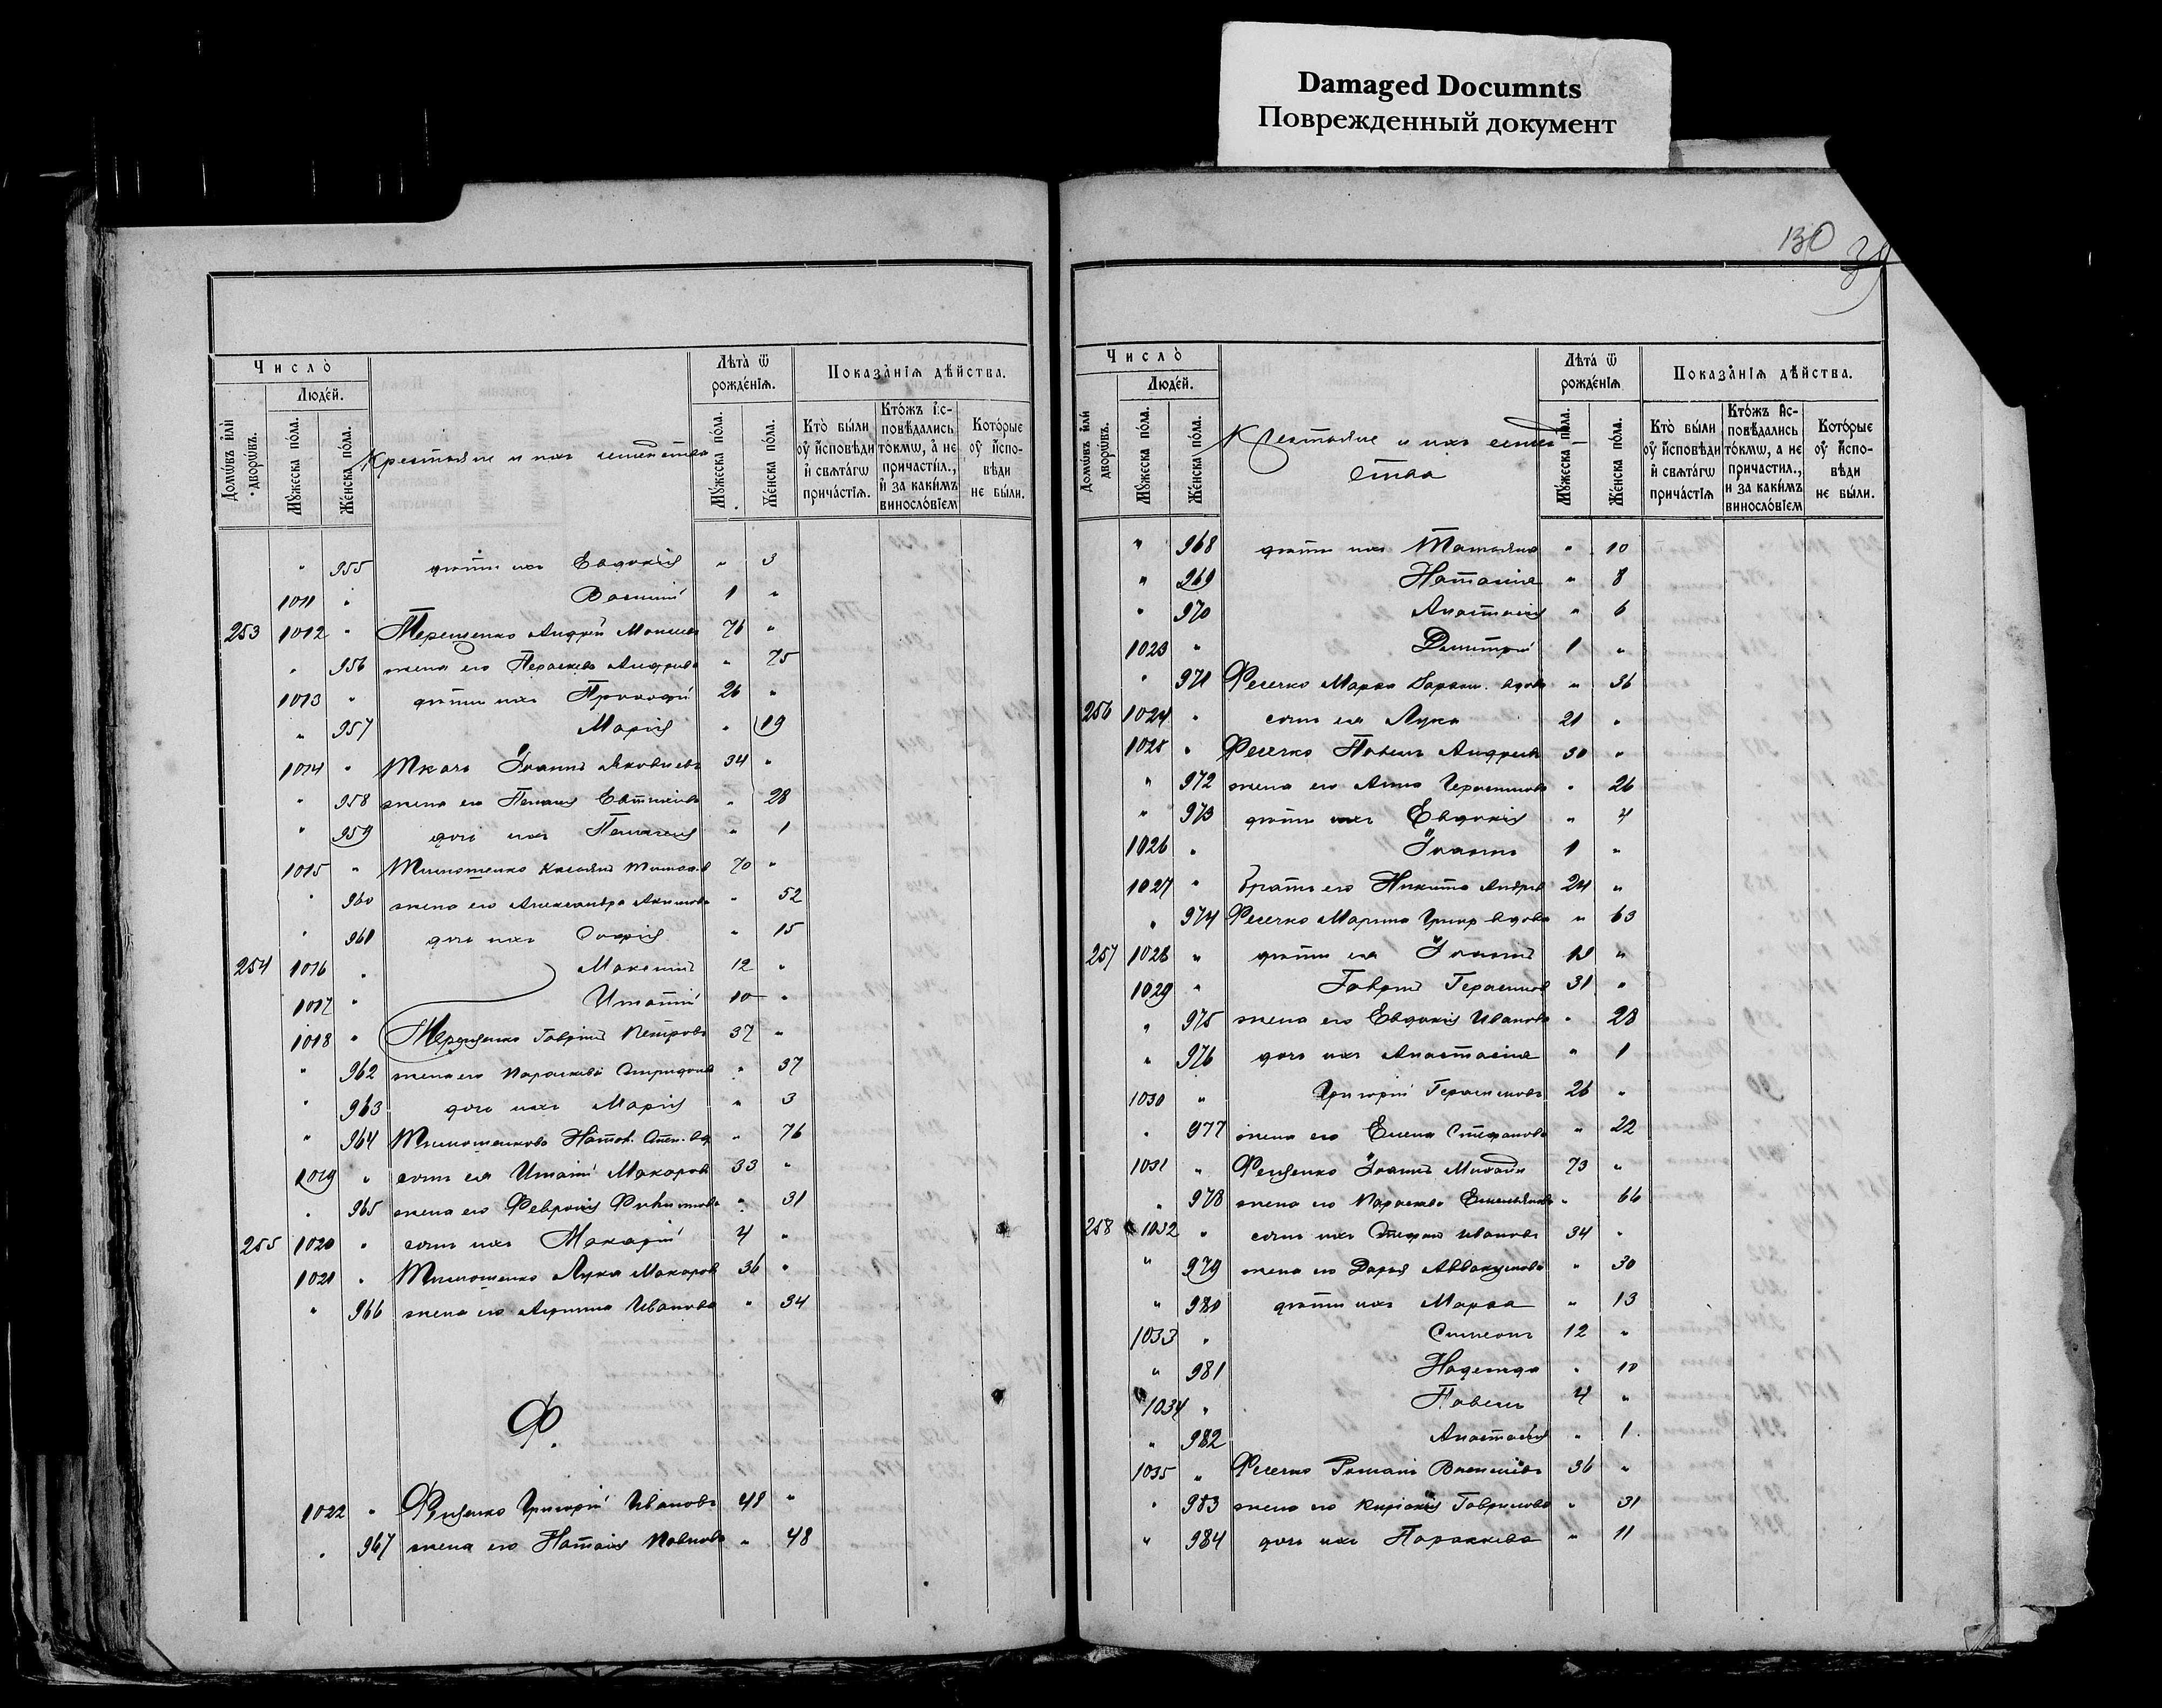 Damaged Documnts
Поврежденный документ
130
39
Число̀
Людéй.
Лѣта̀ ѿ рождéнїѧ.
Показáнїѧ дѣ́йства.
Домѡ́въ и҆лѝ дворѡ́въ.
Мꙋ́жеска по́ла.
Же́нска по́ла.
Крестьяне и ихъ семейства
Мꙋ́жеска по́ла.
Же́нска по́ла.
Кто̀ были оу҆ и҆сповѣди и҆ свѧтáгѡ причáстїѧ.
Кто́жъ и҆сповѣдались то́кмѡ, а҆ не причасти́л., и҆ за каки́мъ винослóвїем
Кото́рые оу҆ и҆сповѣди не бы́ли.
" 955 дѣти ихъ Евдокія " 3
1011 " Василій 1 "
253 1012 " Терещенко Андрей Моисеев 76 "
" 956 жена его Параскева Андреева " 75
1013 " дѣти ихъ Прокофій 26 "
" 957 Марія " 19
1014 " Ткачъ Іоаннъ Яковлевъ 34 "
" 958 жена его Пелагія " 28
" 959 дочь ихъ Пелагея " 1
1015 " Тимошенко Касьянъ 70 "
" 960 жена его Александра Акимова " 52
" 961 дочь ихъ Софія " 15
254 1016 " Максимъ 12 "
1017 " Игнатій 10 "
1018 " Терещенко Гавріилъ Петровъ 37 "
" 962 жена его Параскева Спиридонов " 37
" 963 дочь ихъ Марія " 3
" 964 Тимошенкова Натал. Степ. вд. " 76
1019 " сынъ ея Игнатій Макаровъ 33 "
" 965 жена его Февронія " 31
255 1020 " сынъ ихъ Макарій 4 "
1021 " Тимошенко Лука Макаровъ 36 "
" 966 жена его Ивановa " 34
Ф.
1022 " Фещенко Григорій Ивановъ 48 "
" 967 жена его Наталія Павлова " 48
Число̀
Людéй.
Лѣта́ ѿ рождéнїѧ
Показáнїѧ дѣ́йства.
Домѡ́въ и҆лѝ дворѡ́въ.
Мꙋ́жеска по́ла.
Же́нска по́ла.
Крестьяне и ихъ семей-
ства
Мꙋ́жеска по́ла.
Же́нска по́ла.
Кто̀ были оу҆ и҆сповѣди и҆ свѧтáгѡ причáстїѧ
Кто́жъ и҆сповѣдались то́кмѡ, а не причастил., и за каки́мъ винослóвїем
Кото́рые оу҆ и҆сповѣди не бы́ли.
" 968 дѣти ихъ Татьяна " 10
" 969 Наталія " 8
" 970 Анастасія " 6
1023 " Димитрій 1 "
" 971 Фесечко Марѳа вдова " 36
256 1024 " сынъ ея Лука 21 "
1025 " Фесечко Павелъ Андреев 30 "
" 972 жена его Анна Герасимова " 26
" 973 дѣти ихъ Евдокія " 4
1026 " Іоаннъ 1 "
1027 " братъ его Никита Андреев 24 "
" 974 Фесечко Марина Григор вдова " 63
257 1028 " дѣти ея Іоаннъ "
1029 " Гавріилъ Герасимов 31 "
" 975 жена его Евдокія Иванова " 28
" 976 дочь ихъ Анастасія " 1
1030 " Григорій Герасимовъ 26 "
" 977 жена его Елена Стефанова " 22
1031 " Фещенко Іоаннъ Михайл 73 "
" 978 жена его Параскева Емельянова " 66
258 1032 " сынъ ихъ Стефанъ Ивановъ 34 "
" 979 жена его Дарья Аввакумова " 30
" 980 дѣти ихъ Марѳа " 13
1033 " Симеонъ 12 "
" 981 Надежда " 10
1034 " Павелъ 4 "
" 982 Анастасія " 1
1035 " Фесечко Романъ Васильевъ 36 "
" 983 жена его Киріакія Гаврилова " 31
" 984 дочь ихъ Параскева " 11